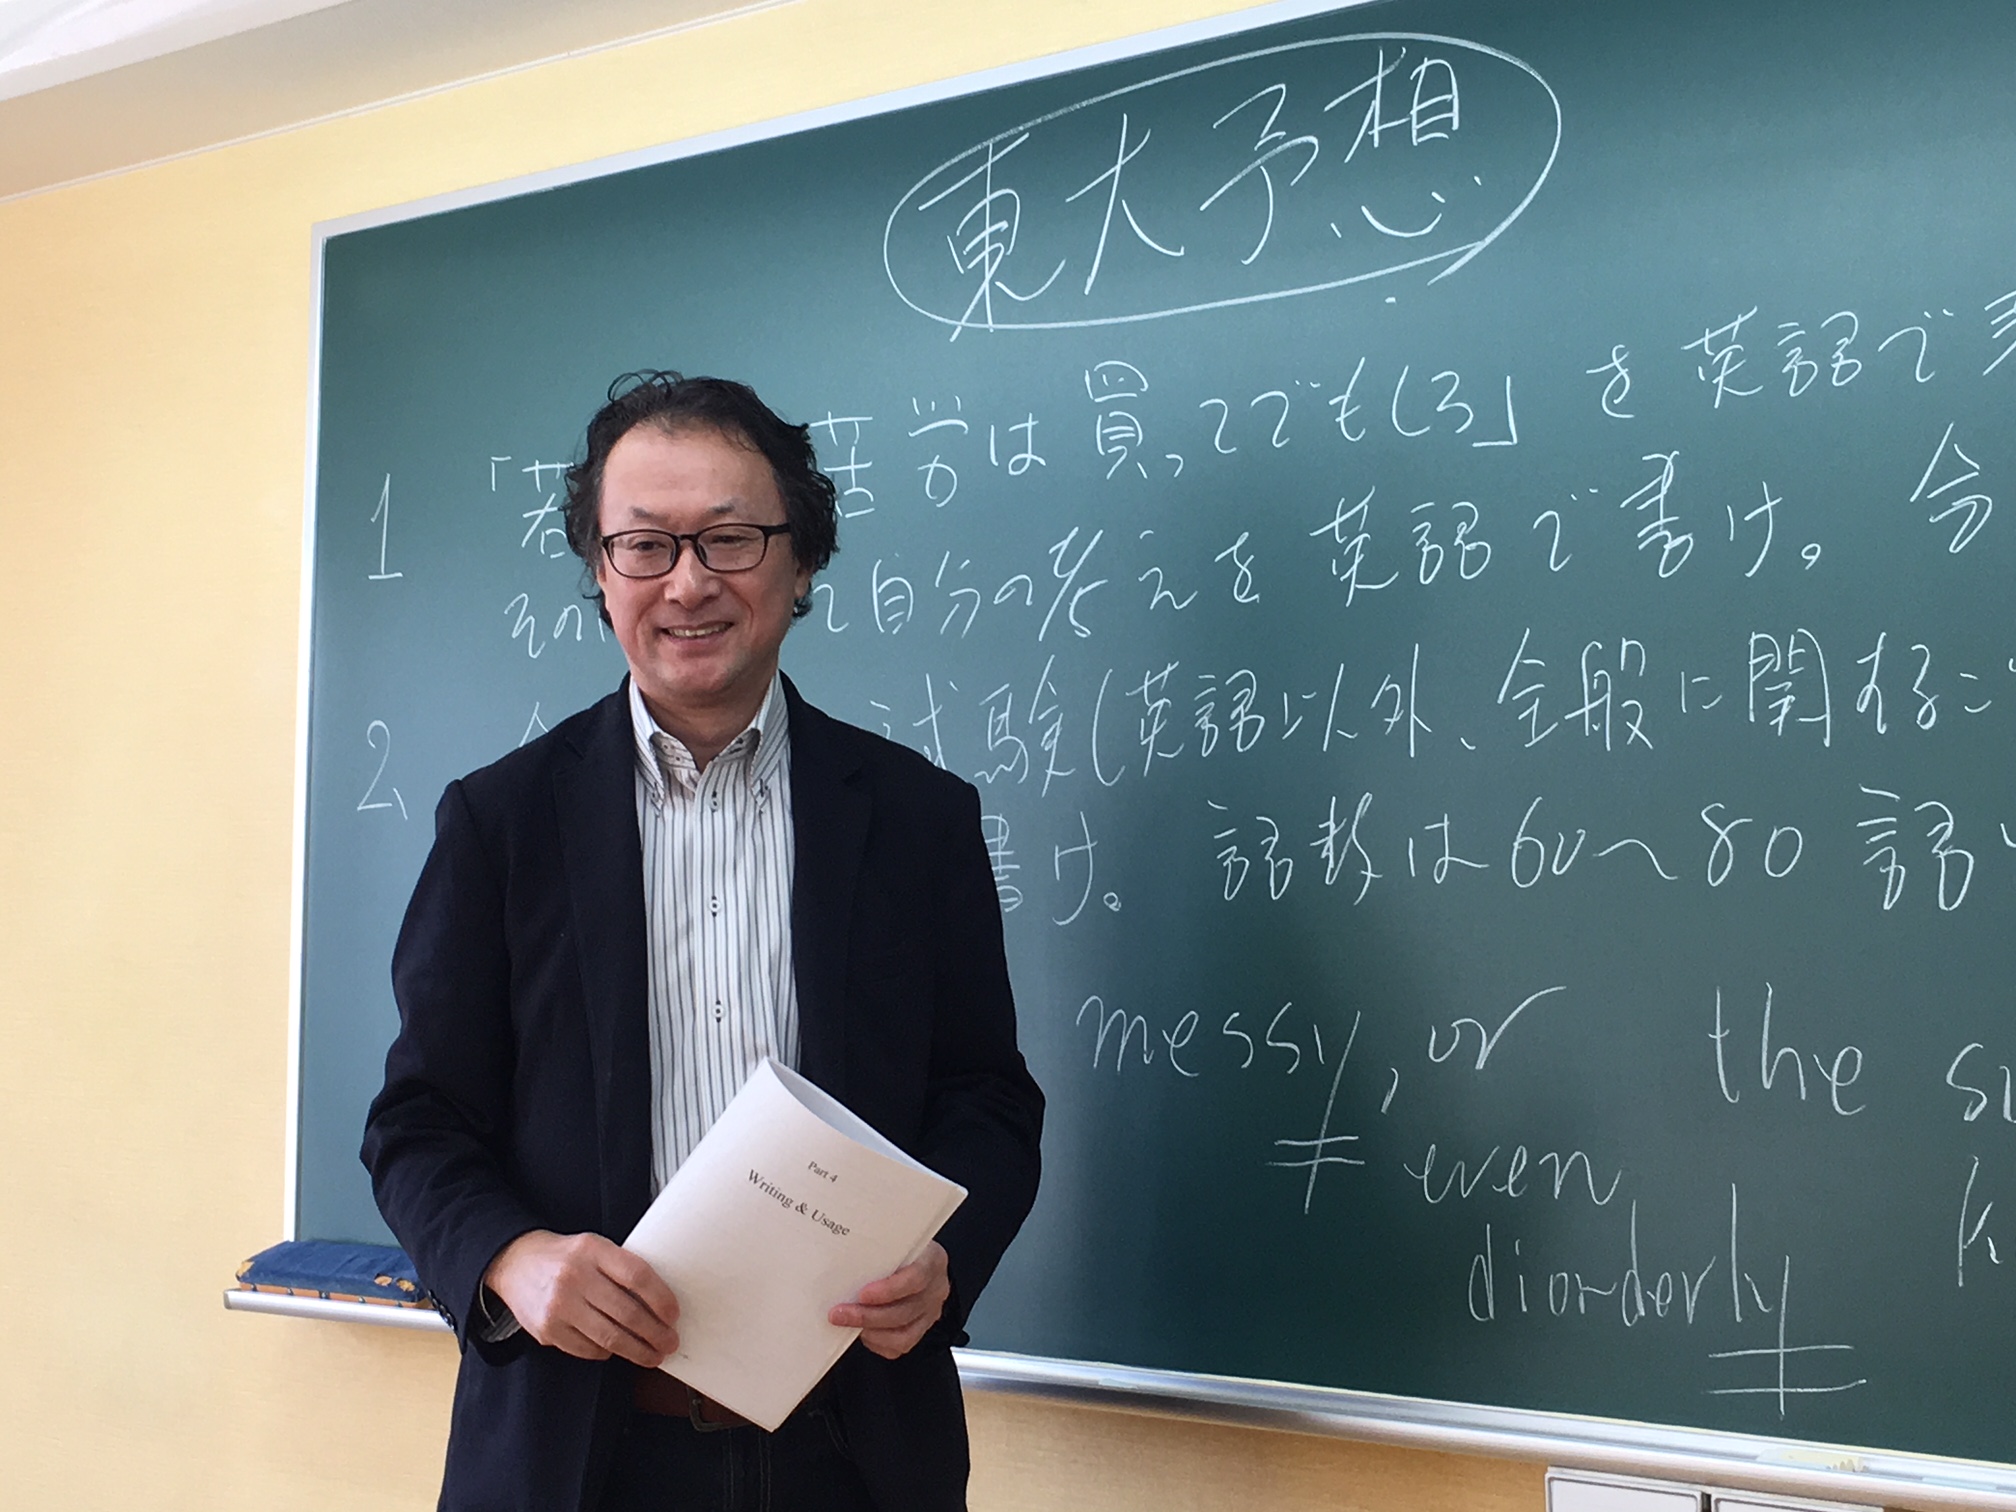 東大予想
1 「若 苦労は買ってでもしろ」を英語で
その て自分の考えを英語で書け。
2、 試験(英語以外、全般に関するこ
書け。語数は60〜80語
messy, or the
even
diorderly
Part 4
Writing & Usage